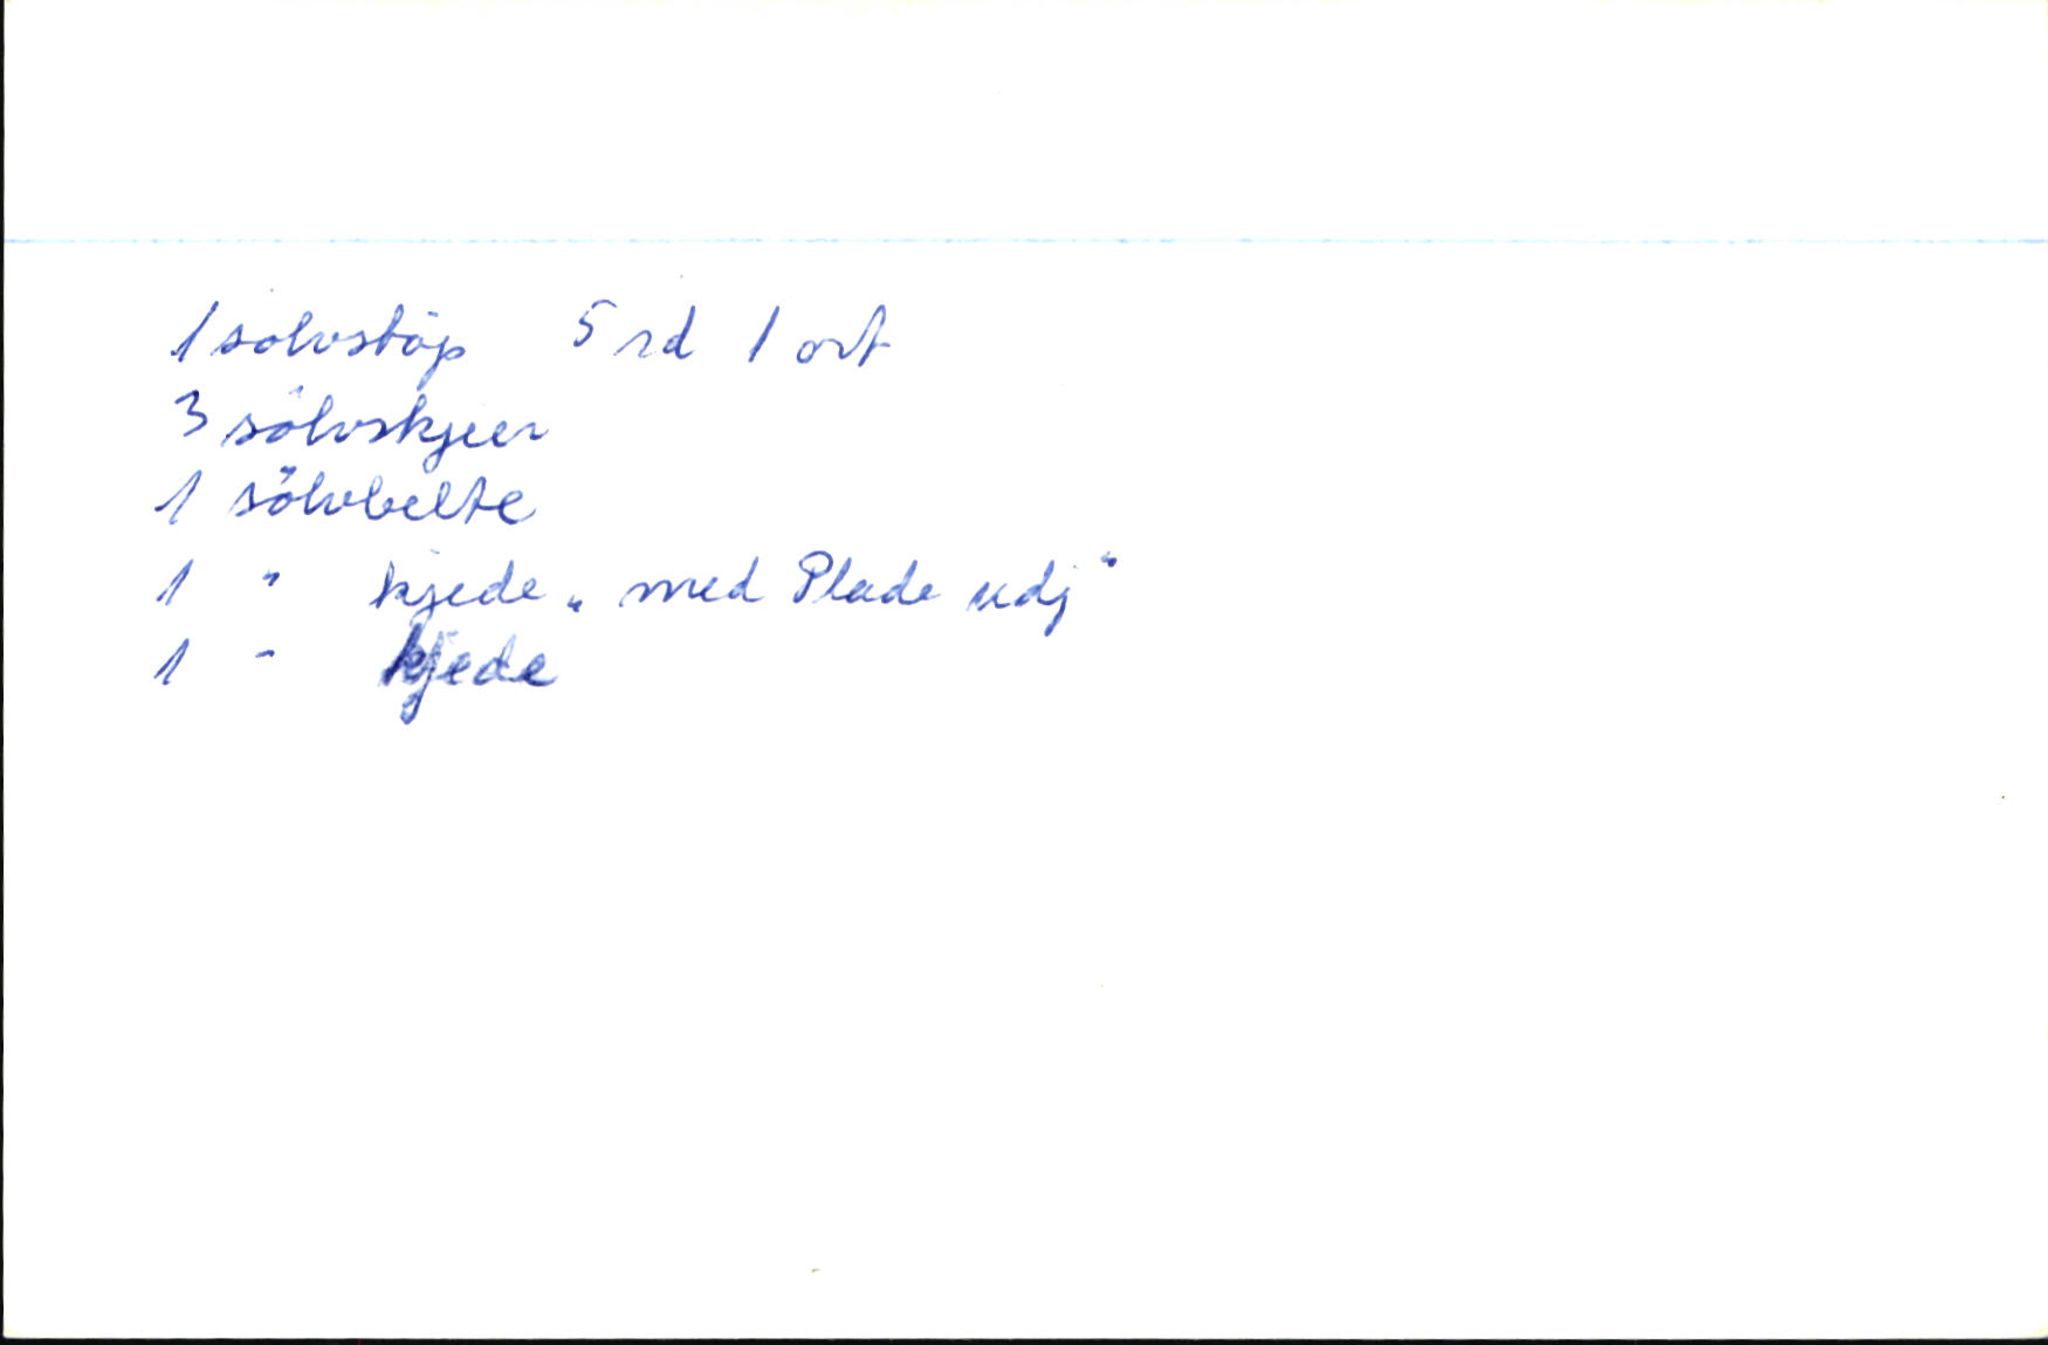 1 sölvstöp 5 rd 1 ort
3 sölvskjeer
1 sölvbelte
1 " kjede „med Plade udj"
1 " kjede